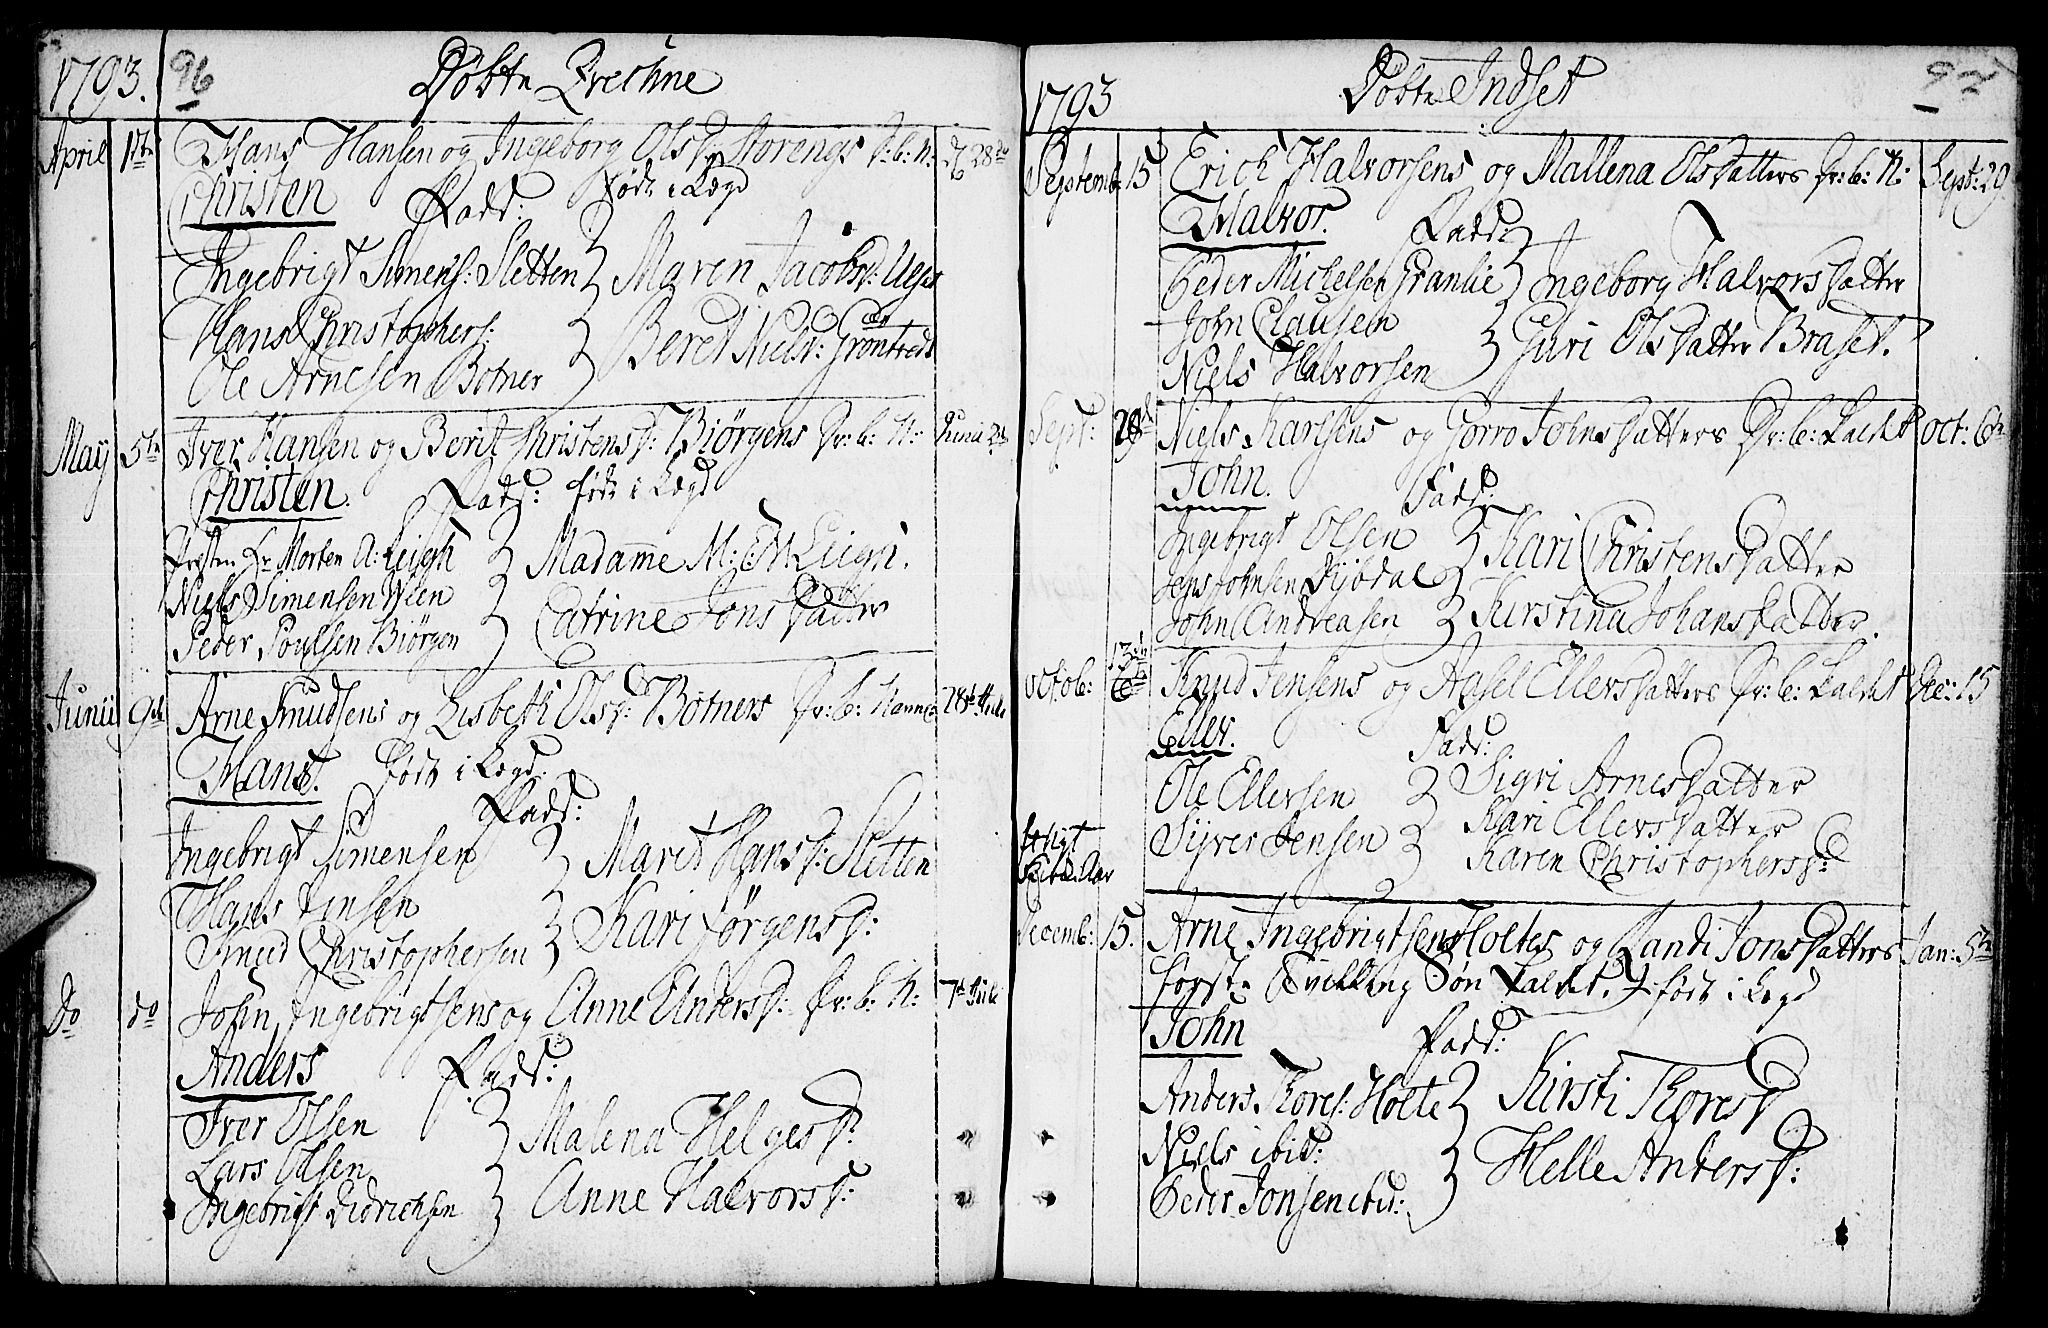 1793. 96 Döbte Qvechne
April 1ste Hans Hansen og Ingeborg Olsd: Storengs d: b: N: d 28de
Christen Fadd: födt i Lægd
Ingebrigt Simens: Sletten Maren Jacobsd:
Hans Christophers: Beret Nielsd: Gröntredt
Ole Arnesen Botner
May 5te Iver Hansen og Berit Christensd: Biörgens Dr: b: N: Junii 2d
Christen. Fadd: födt i Lægd
Presten Hr Morten A: Leigh Madame M: E: M Leigh.
Niels Simensen Wien Catrine Jons datter
Peder Poulsen Biörgen
Junii 9de Arne Knudsens og Lisbeth Olsd: Botners Dr: b: Navne 28de
Hans. födt i Lægd.
Fadd:
Ingebrigt Simensen Marit Hansd: Sletten
Hans Jensen Kari Jörgensd:
Knud Christophersen
Do do John Ingebrigtsens og Anne Andersd: Dr: b: N: 7de Julii
Anders Fadd:
Iver Olsen Malena Helgesd:
Lars Olsen Anne Halvorsd:
Ingebrigt Didrichsen
1793 Döbte Indset 97
Septemb: 15 Erich Halvorsens og Mallena Olsdatters Dr: b: N: Sept: 29.
Halvor. Fadd:
Peder Michelsen Granlie Ingeborg Halvorsdatter
John Clausen Guri Olsdatter Braset.
Niels Halvorsen
Sept: 29 Niels Karlsens og Gorro Johnsdatters Dr: b: kaldet Oct: 6te
John. Fadd:
Ingebrigt Olsen Kari Christensdatter
Jens Johnsen Dybdal Kirstina Johansdatter.
John Andreasen
Octob: 13de Knud Jensens og Aasel Ellersdatters Dr: b: kaldet Dec: 15
Eller. Fadd:
Ole Ellersen Sigri Arnesdatter
Siver Jensen Kari Ellersdatter
Karen Christophersd:
Decemb: 15. Arne Ingebrigtsens Holtes og Randi Jonsdatters Jan: 5te
förste Tvilling Sön kaldet födt i Lægd
John Fadd:
Anders Tores: Holte Kirsti Toresd
Niels ibid: Helle Andersd:
Peder Jonsen ibid: